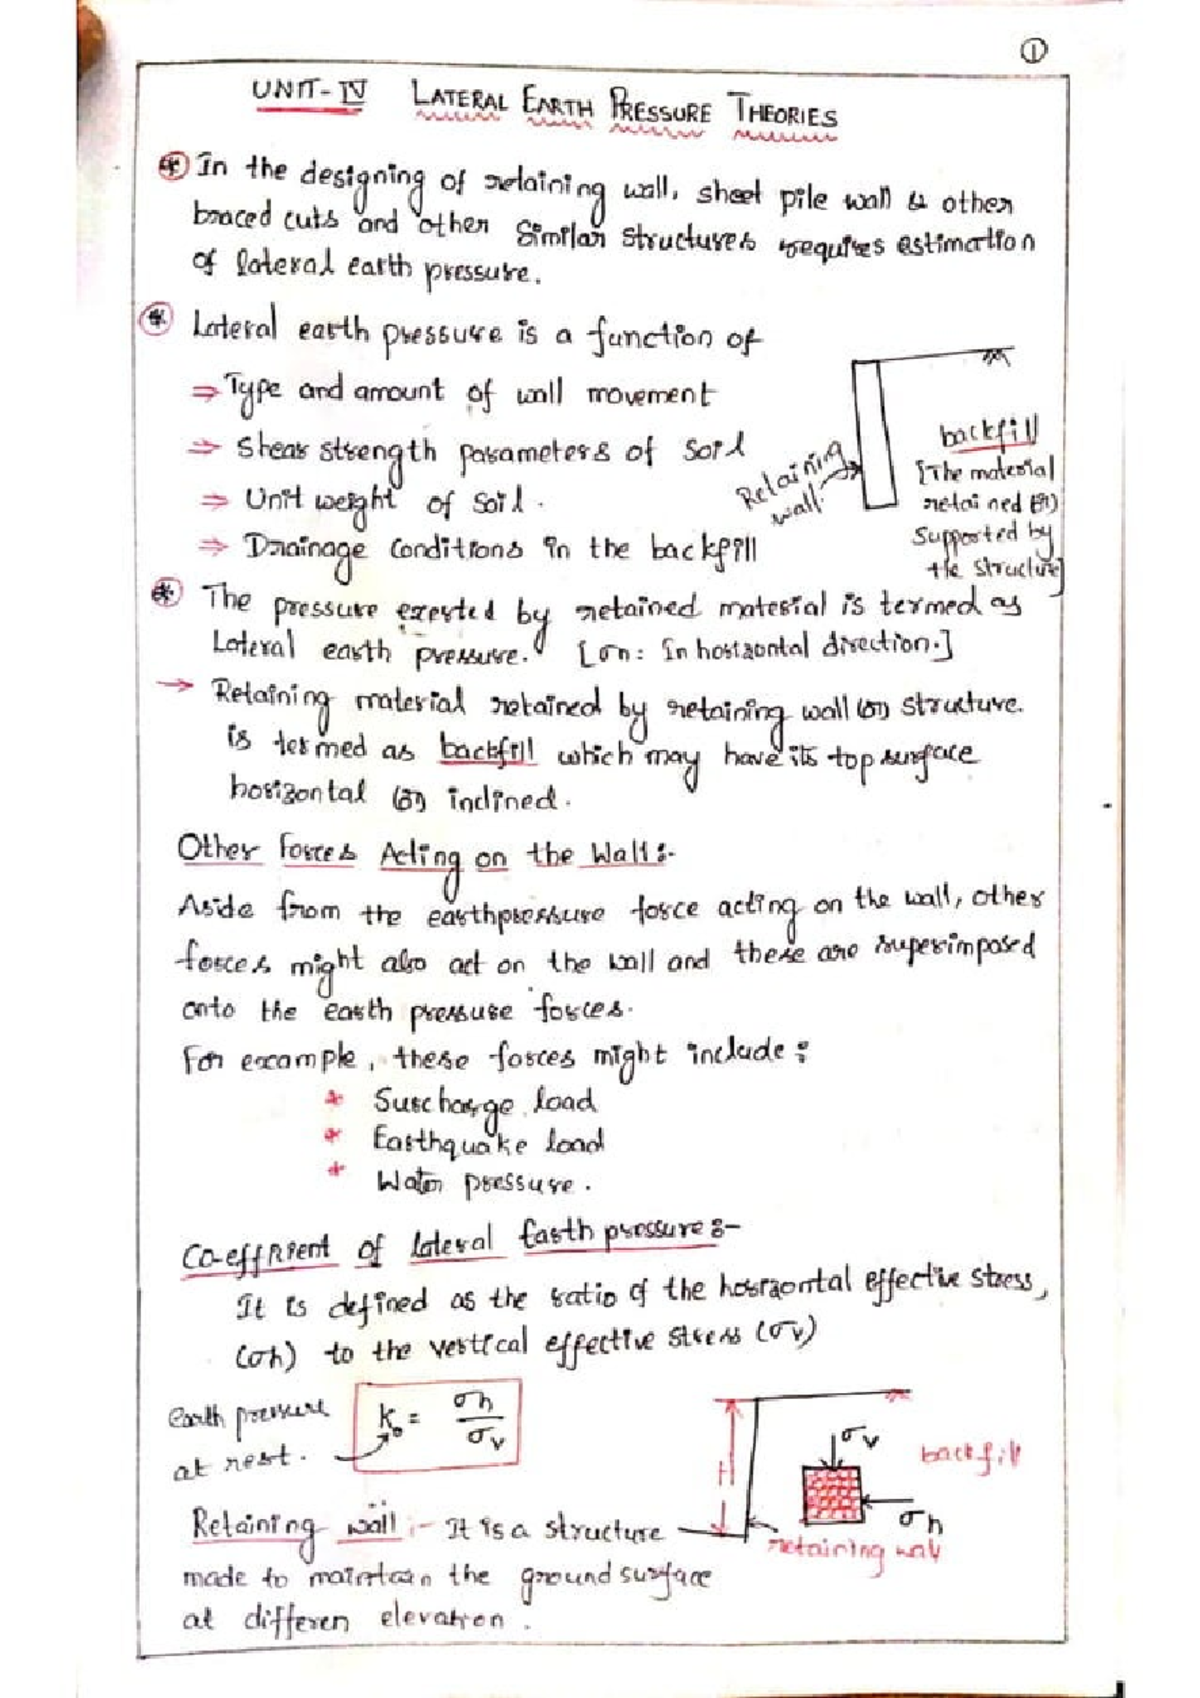 1
UNIT-IV LATERAL EARTH PRESSURE THEORIES
* In the designing of retaining wall, sheet pile wall & other
braced cuts and other similar structures requires estimation
of lateral earth pressure.
* Lateral earth pressure is a function of
⇒ Type and amount of wall movement
⇒ Shear strength parameters of soil
⇒ Unit weight of soil.
⇒ Drainage conditions in the backfill
Retaining
wall
backfill
[The material
retained (or)
supported by
the structure]
* The pressure exerted by retained material is termed as
Lateral earth pressure. [σn: In horizontal direction.]
→ Retaining material retained by retaining wall (or) structure.
is termed as backfill which may have its top surface
horizontal (or) inclined.
Other forces Acting on the Wall:-
Aside from the earthpressure force acting on the wall, other
forces might also act on the wall and these are superimposed
onto the earth pressure forces.
For example, these forces might include:
* Surcharge load
* Earthquake load
* Water pressure.
Co-efficient of lateral Earth pressure:-
It is defined as the ratio of the horizontal effective stress,
(σh) to the vertical effective stress (σv)
earth pressure
at rest.
K₀ = σh/σv
H
σv
backfill
σh
retaining wall
Retaining wall:- It is a structure
made to maintain the ground surface
at differen elevation.